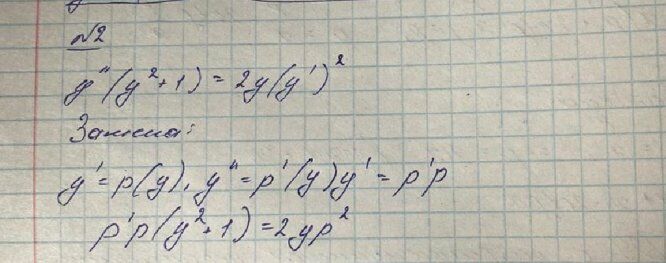 №2
y''(y²+1) = 2y(y')²
Замена:
y' = p(y), y'' = p'(y)y' = p'p
p'p(y²+1) = 2yp²